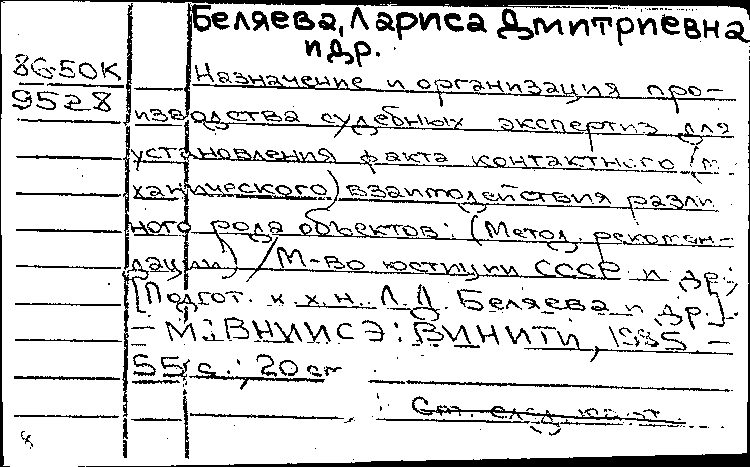 Беляева, Лариса Дмитриевна
и др.
86-50К
9528
Назначение и организация про-
изводства судебных экспертиз для
установления факта контактного (м
ханического) взаимодействия разли
ного рода объектов: (Метод. рекомен-
дации) / М-во юстиции СССР и др.;
[Подгот. к. х. н. Л. Д. Беляева и др.].
- М.: ВНИИСЭ: ВИНИТИ, 1985 -
55 с.; 20 см